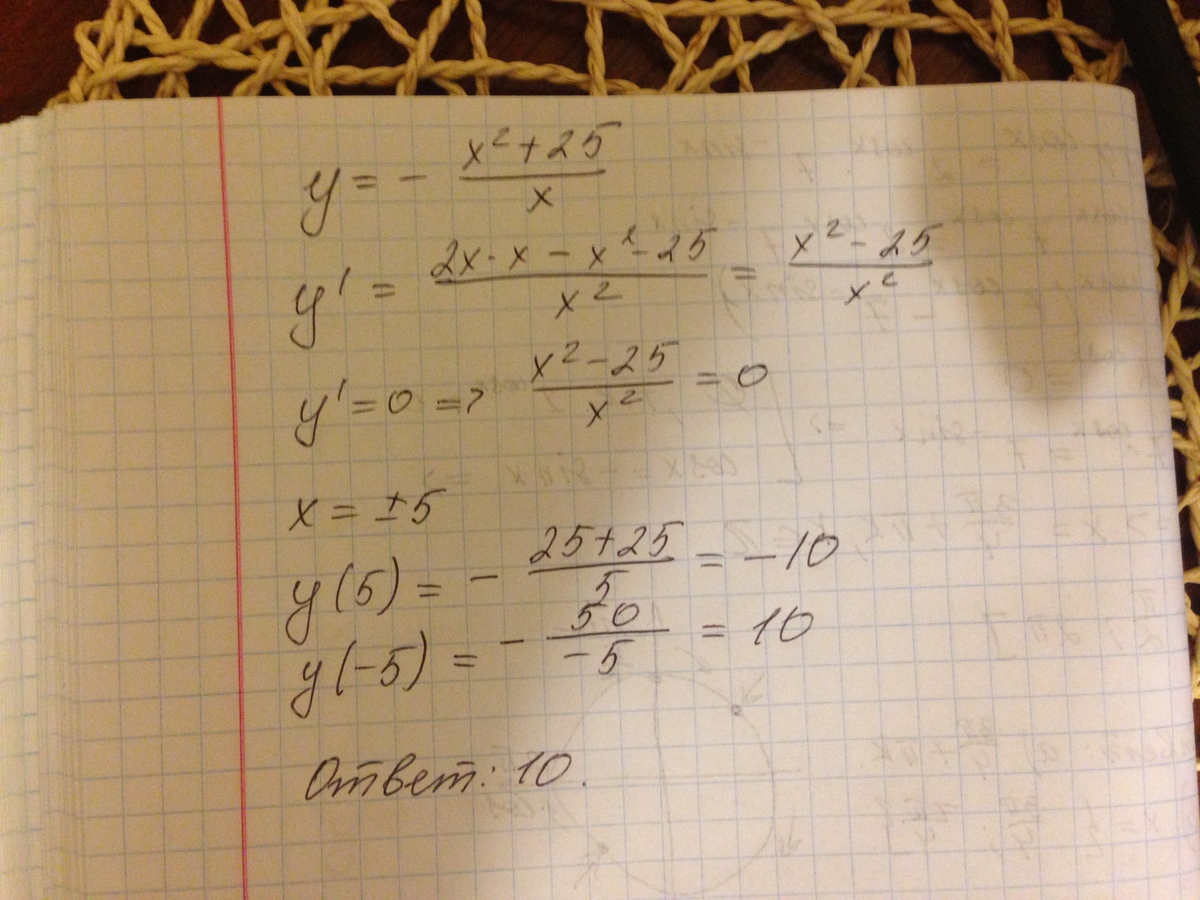 y = - (x² + 25)/x
y' = (2x · x - x² - 25)/x² = (x² - 25)/x²
y' = 0 => (x² - 25)/x² = 0
x = ±5
y(5) = - (25+25)/5 = -10
y(-5) = - 50/-5 = 10
Ответ: 10.